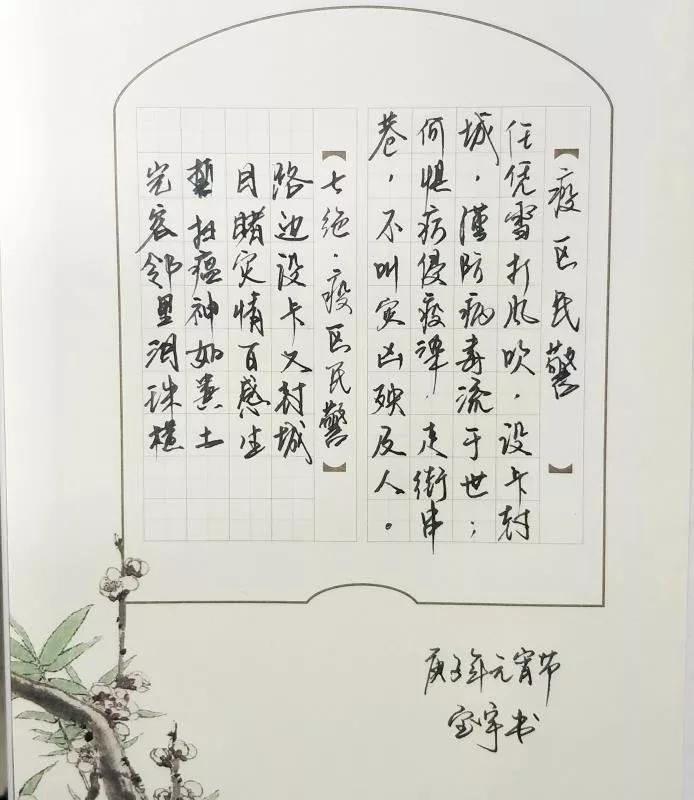 【疫区民警】
任凭雪打风吹，设卡封
城，谨防病毒流于世；
何惧病侵疫，走街串
巷，不叫灾凶殃及人。
【七绝·疫区民警】
路边设卡又封城
目睹灾情百感生
扫瘟神如粪土
岂容邻里泪珠横
庚子年元宵节
宝宇书